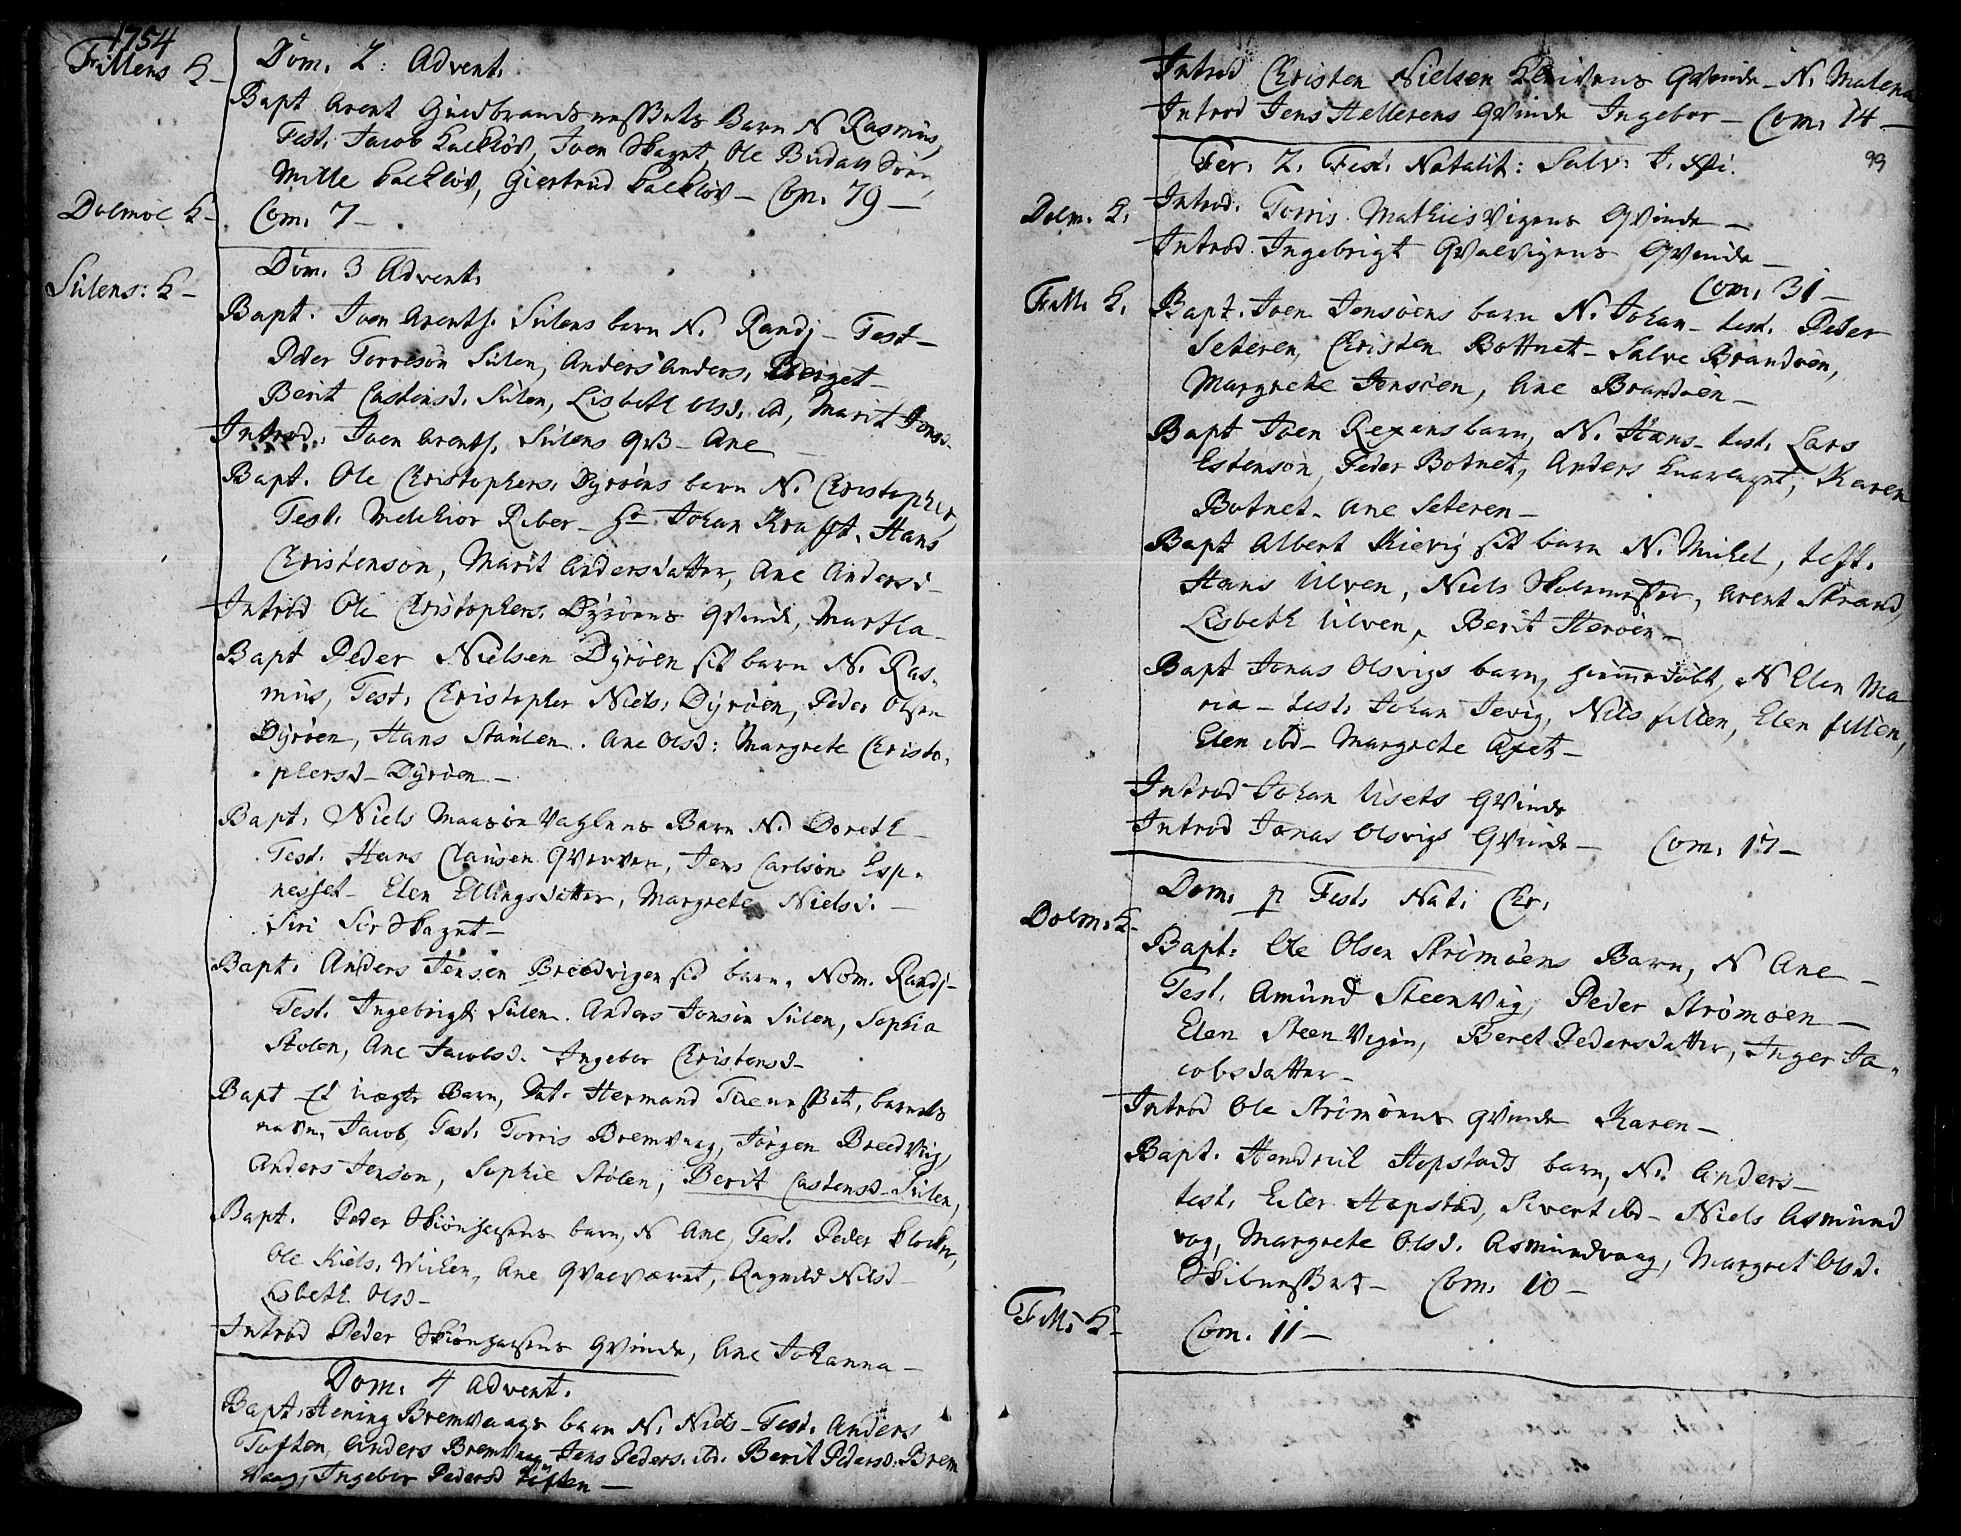 1754
Fillens K-
Dom. 2: Advent.
Bapt Arent Barn N Rasmus,
Test. Jacob Kalkløv, Joen Skagnt, Ole Budals Søn,
Mille Kalkløv, Giertrud Kalkløv - Com. 79 -
Dolmøe K-
Com. 7 -
Dom. 3 Advent.
Sulens: K-
Bapt. Joen Arents. Sulens barn N. Randj - Test -
Peder Torresøn Sulen, Anders Anders. Berget -
Berit Castensd. Sulen, Lisbeth Olsd. ibd, Marit Jonsd.
Introd. Joen Arents. Sulens qv - Ane -
Bapt. Ole Christophers. Dyrøens barn N. Christopher,
Test. Melchior Riber - Hr Johan Krafft. Hans
Christenson, Marit Andersdatter, Ane Andersd -
Introd Ole Christophers. Dyrøens Qvinde, Martha -
Bapt Peder Nielsen Dyrøen sit barn N. Ras-
mus, Test. Christopher Niels. Dyrøen, Peder Olsen
Dyrøen, Hans Staulen. Ane Olsd: Margrete Christo-
phersd - Dyrøen -
Bapt. Niels Maasøn Barn N. Doreth -
Test. Hans Clausen Qverven, Jens Carlsøn Esp-
nesset - Elen Ellingsdatter, Margrete Nielsd. -
Siri Sør Skagnt -
Bapt. Anders Jensen Breedvigen sid barn. Nom. Randj -
Test. Ingebrigt Sulen. Anders Jonsøn Sulen, Sophia
Stolen, Ane Jacobsd. Ingebor Christensd -
Bapt Et uægte Barn, Pat. Hermand barnets
navn, Jacob, Test. Torris Bremvaag, Jørgen Breedvig,
Anders Jensøn, Sophie Stølen, Berit Castensd - Sulen,
Bapt. Peder barn, N Ane, Test. Peder Klocker,
Ole Niels. Ane Qvalværnt, Ragnild Nilsd -
Lisbeth Olsd -
Introd Peder Qvinde, Ane Johanna -
Dom. 4 Advent.
Bapt. Hening Bremvaags barn N. Niels - Test. Anders
Toften, Anders Bremvaag, Jens Peders. ibd. Berit Pedersd: Brem
vaag, Ingebor Pedersd Toften -
Introd Christen Nielsen Qvinde - N. Malena
Introd Jens Hellerens Qvinde Ingebor - Com. 14 -
99
Fer. 2. Fest. Natalit: Salv: J. Xti.
Dolm. K.
Introd. Torris Mathiesvigens Qvinde -
Introd. Ingebrigt Qvalvigens Qvinde -
Com. 31 -
Fill. K.
Bapt. Joen Jensøens barn N. Johan - test. Peder
Seteren, Christen Bottnet - Salve Brandøen,
Margrete Jensøen, Ane Brandøen -
Bapt Joen Rexens barn, N. Hans - test. Lars
Estensøn, Peder Botnet, Anders Karen
Botnet - Ane Seteren -
Bapt Albert Kievig sit barn N. Mikel, test.
Hans Ulven, Niels Skolemester, Arent Strand,
Lisbeth Ulven, Berit Herøen -
Bapt Jonas Olsvigs barn, hiemmedøbt, N Elen Ma
ria - test. Johan Jevig, Nils fillen, Elen fillen,
Elen ibd - Margrete Axet -
Introd Johan Usets Qvinde
Introd Jonas Olsvigs Qvinde - Com. 17 -
Dom. p Fest. Nat: Chr.
Dolm. K-
Bapt: Ole Olsen Strømøens Barn, N Ane -
Test. Amund Steenvig, Peder Strømøen -
Elen Steenvigen, Beret Pedersdatter, Inger Ja-
cobsdatter -
Introd Ole Strømøens Qvinde Karen -
Bapt. Hendrich Hopstads barn, N. Anders -
test. Eiler Hopstad, Sivert ibd - Niels Asmund
vog, Margrete Olsd. Asmundvaag, Margret Olsd.
Com. 10 -
Fill: K-
Com. 11 -